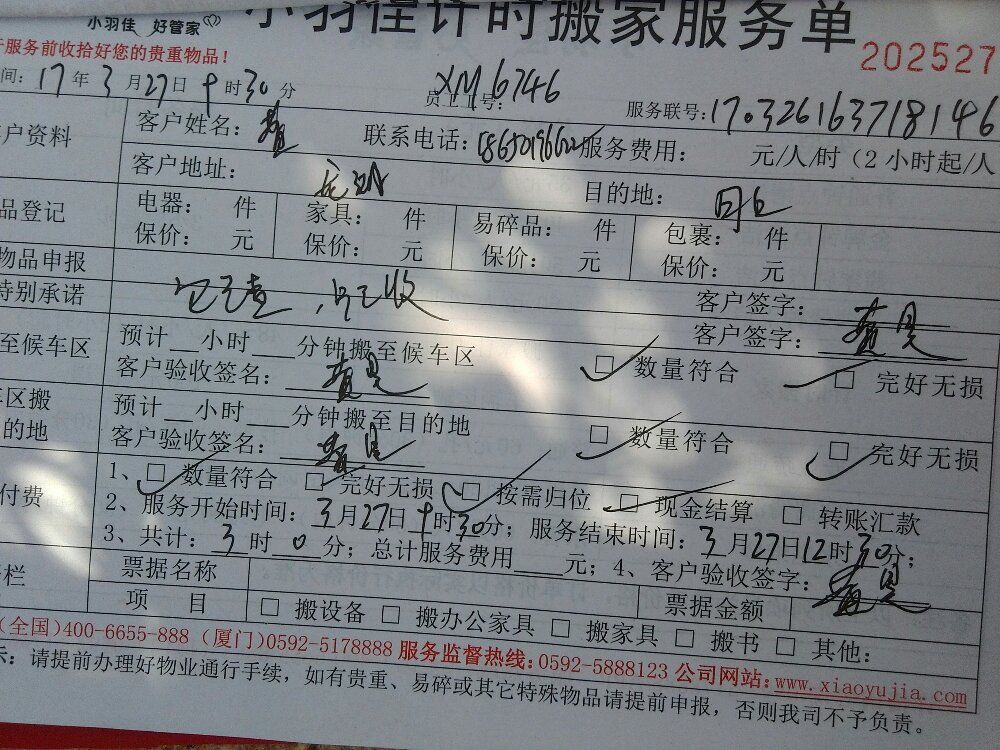 小羽佳 好管家
小羽佳计时搬家服务单
服务前收拾好您的贵重物品！
202527
间：17年3月27日9时30分 员工工号：XM6746 服务联号：170326163718146
户资料 客户姓名： 联系电话： 服务费用： 元/人/时（2小时起/人
客户地址： 目的地：
品登记 电器： 件 家具： 件 易碎品： 件 包裹： 件
保价： 元 保价： 元 保价： 元 保价： 元
物品申报 客户签字：
特别承诺 客户签字：
至候车区 预计__小时___分钟搬至候车区 □ 数量符合 □ 完好无损
客户验收签名：
区搬 预计__小时___分钟搬至目的地 □ 数量符合 □ 完好无损
的地 客户验收签名：
付费 1、□ 数量符合 □ 完好无损 □ 按需归位 □ 现金结算 □ 转账汇款
2、服务开始时间：3月27日9时30分；服务结束时间：3月27日12时30分；
3、共计：3时0分；总计服务费用___元；4、客户验收签字：
栏 票据名称 票据金额
项 目 □ 搬设备 □ 搬办公家具 □ 搬家具 □ 搬书 □ 其他：
(全国)400-6655-888 (厦门)0592-5178888 服务监督热线：0592-5888123 公司网站：www.xiaoyujia.com
示：请提前办理好物业通行手续，如有贵重、易碎或其它特殊物品请提前申报，否则我司不予负责。